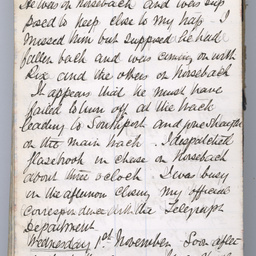 He was on horseback and was sup
posed to keep close to my trap. I
missed him but supposed he had
fallen back and was coming on with
Rix and the others on horseback
It appears that he must have
failed to turn off at the track
leading to Southport and gone straight
on the main track. I despatched
Hasebrook in chase on horseback
about three o'clock. I was busy
in the afternoon closing my official
correspondence with the Telegraph
Department
Wednesday 1st November. Soon after